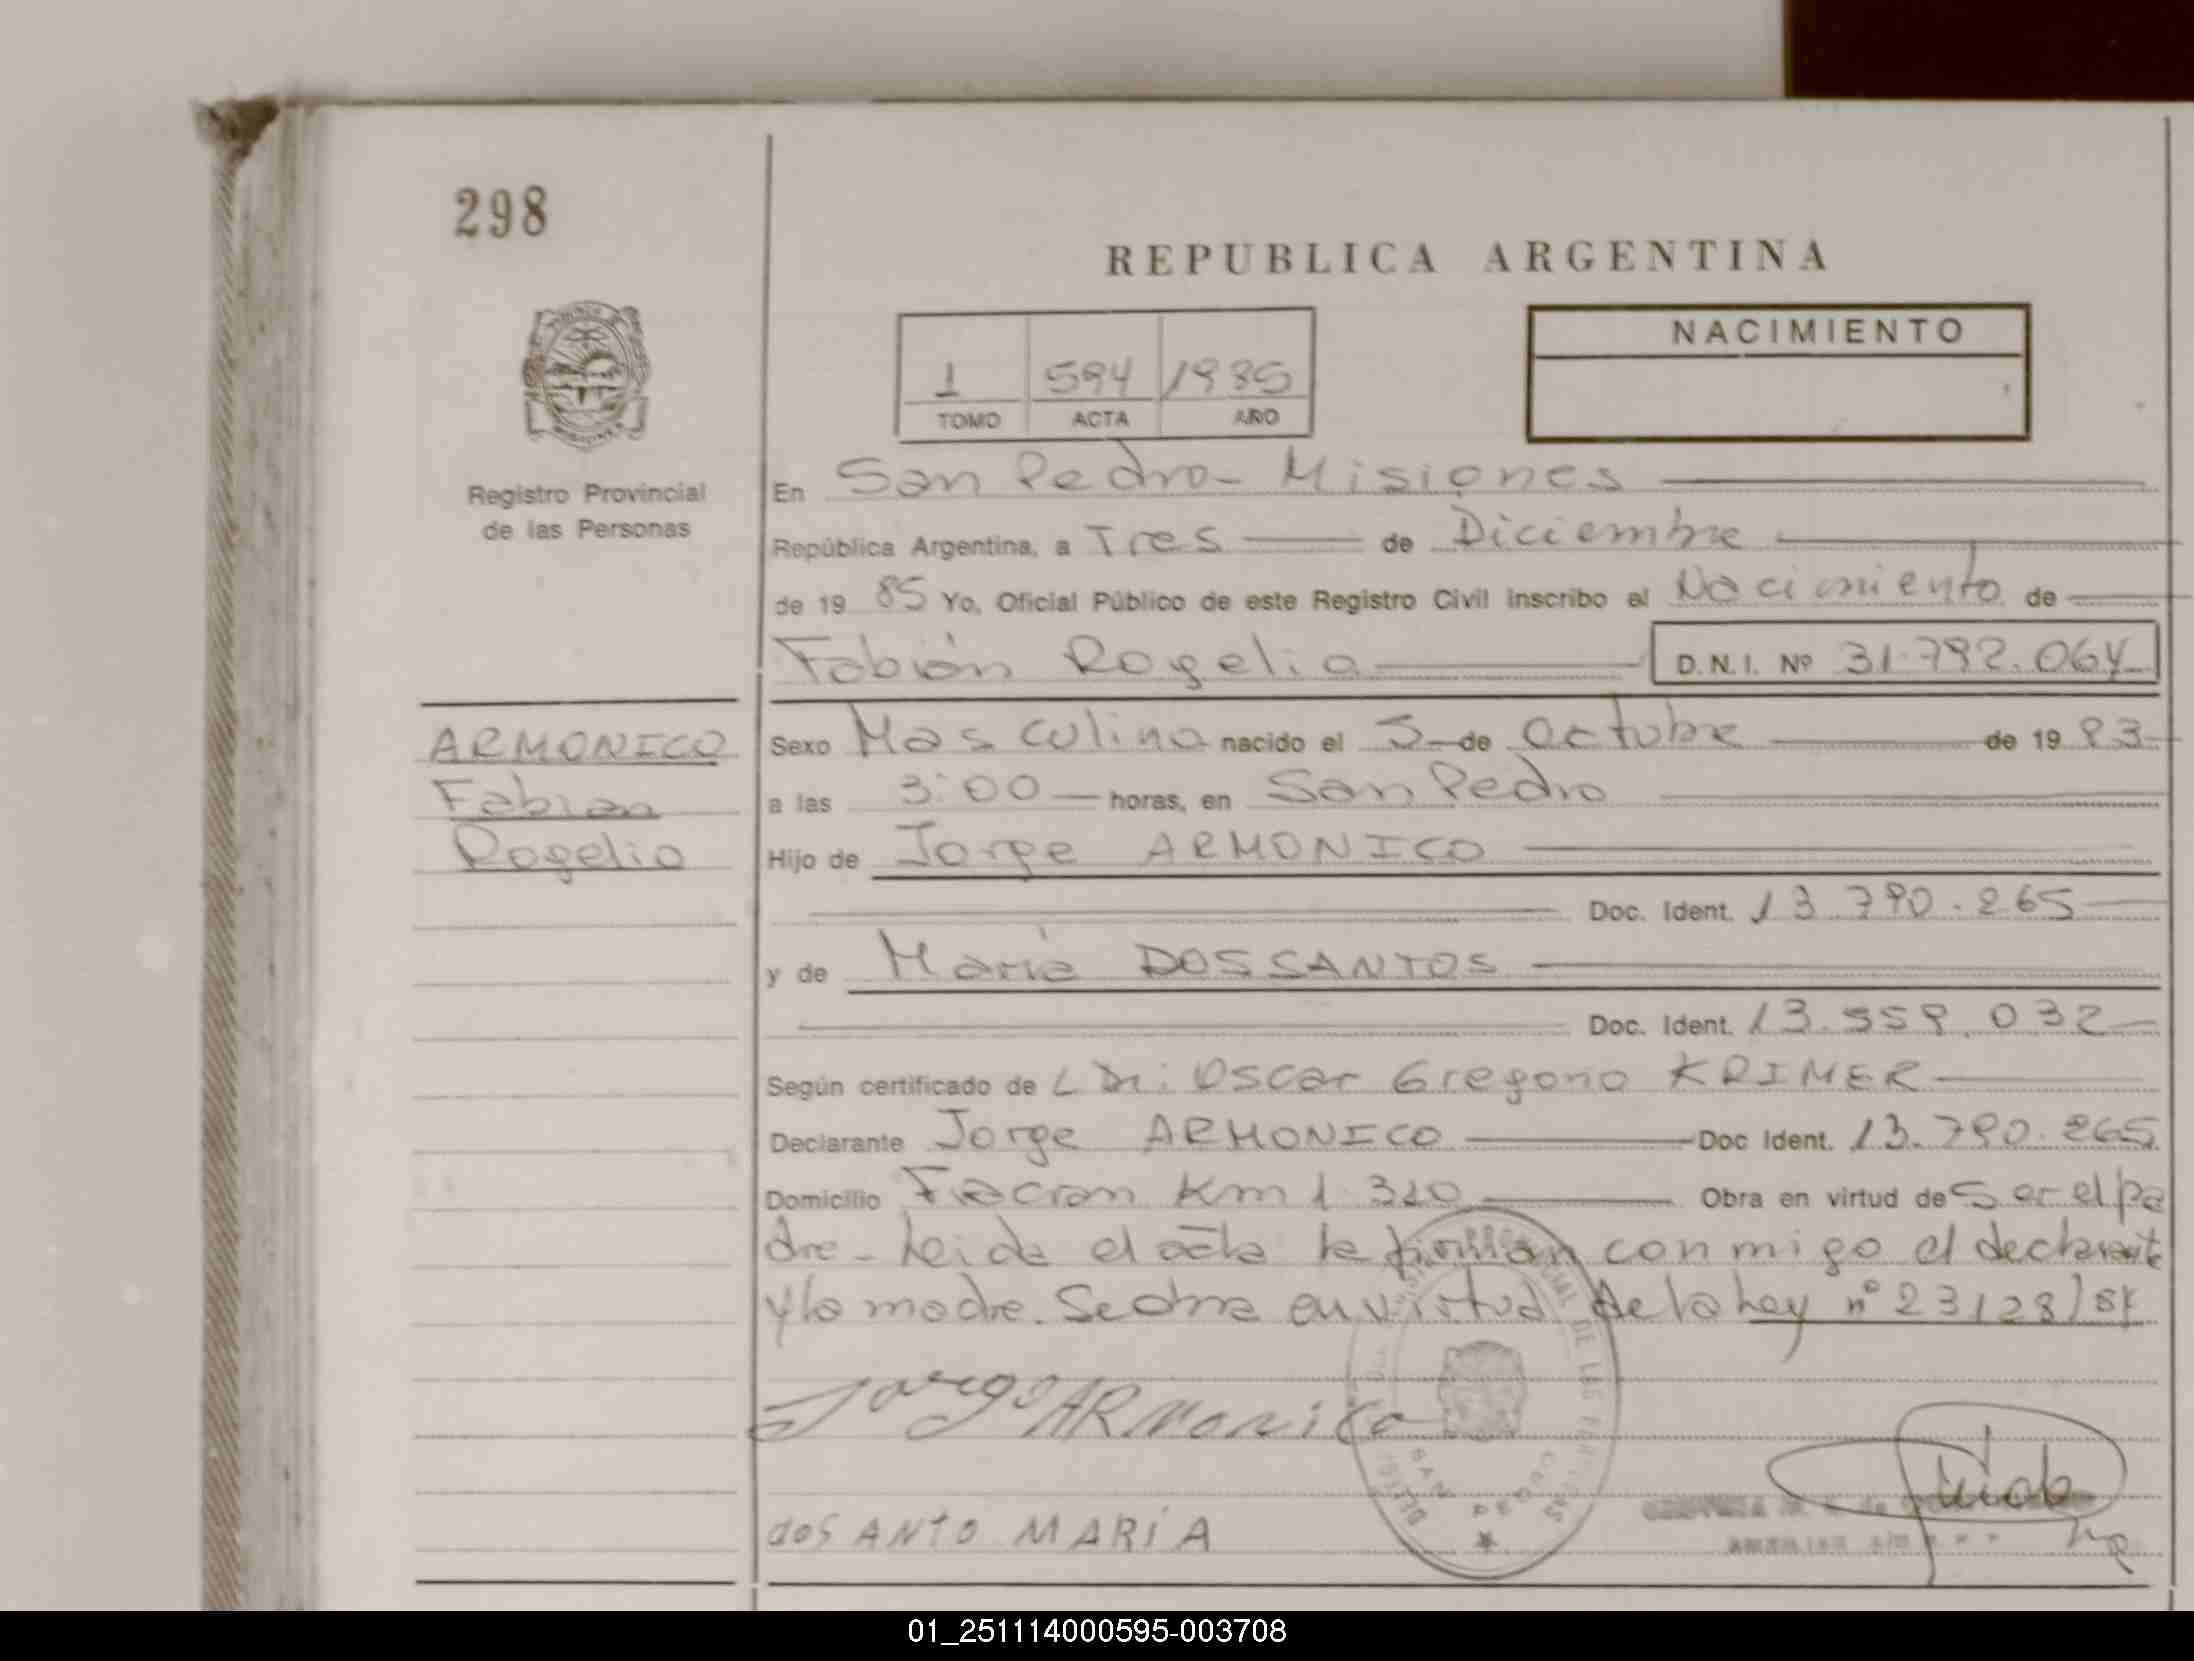 298
REPUBLICA ARGENTINA
NACIMIENTO
1 594 1985
TOMO ACTA AÑO
Registro Provincial
de las Personas
En San Pedro - Misiones
República Argentina, a Tres de Diciembre
de 19 85 Yo, Oficial Público de este Registro Civil inscribo el Nacimiento de
Fabián Rogelio D.N.I. Nº 31.792.064
ARMONICO
Fabian
Rogelio
Sexo Masculino nacido el 5 de Octubre de 19 83
a las 3:00 horas, en San Pedro
Hijo de Jorge ARMONICO
Doc. Ident. 13.790.265
y de María DOS SANTOS
Doc. Ident. 13.559.032
Según certificado de Oscar Gregorio KRIMER
Declarante Jorge ARMONICO Doc Ident. 13.790.265
Domicilio Fracran Km 1.310 Obra en virtud de Ser el pa
dre - Leida el acta la firman conmigo el declarante
y la madre. Se obra en virtud de la Ley nº 23128/84
Jorge ARMONICO
dos ANTO MARÍA
SAN PEDRO
01_251114000595-003708